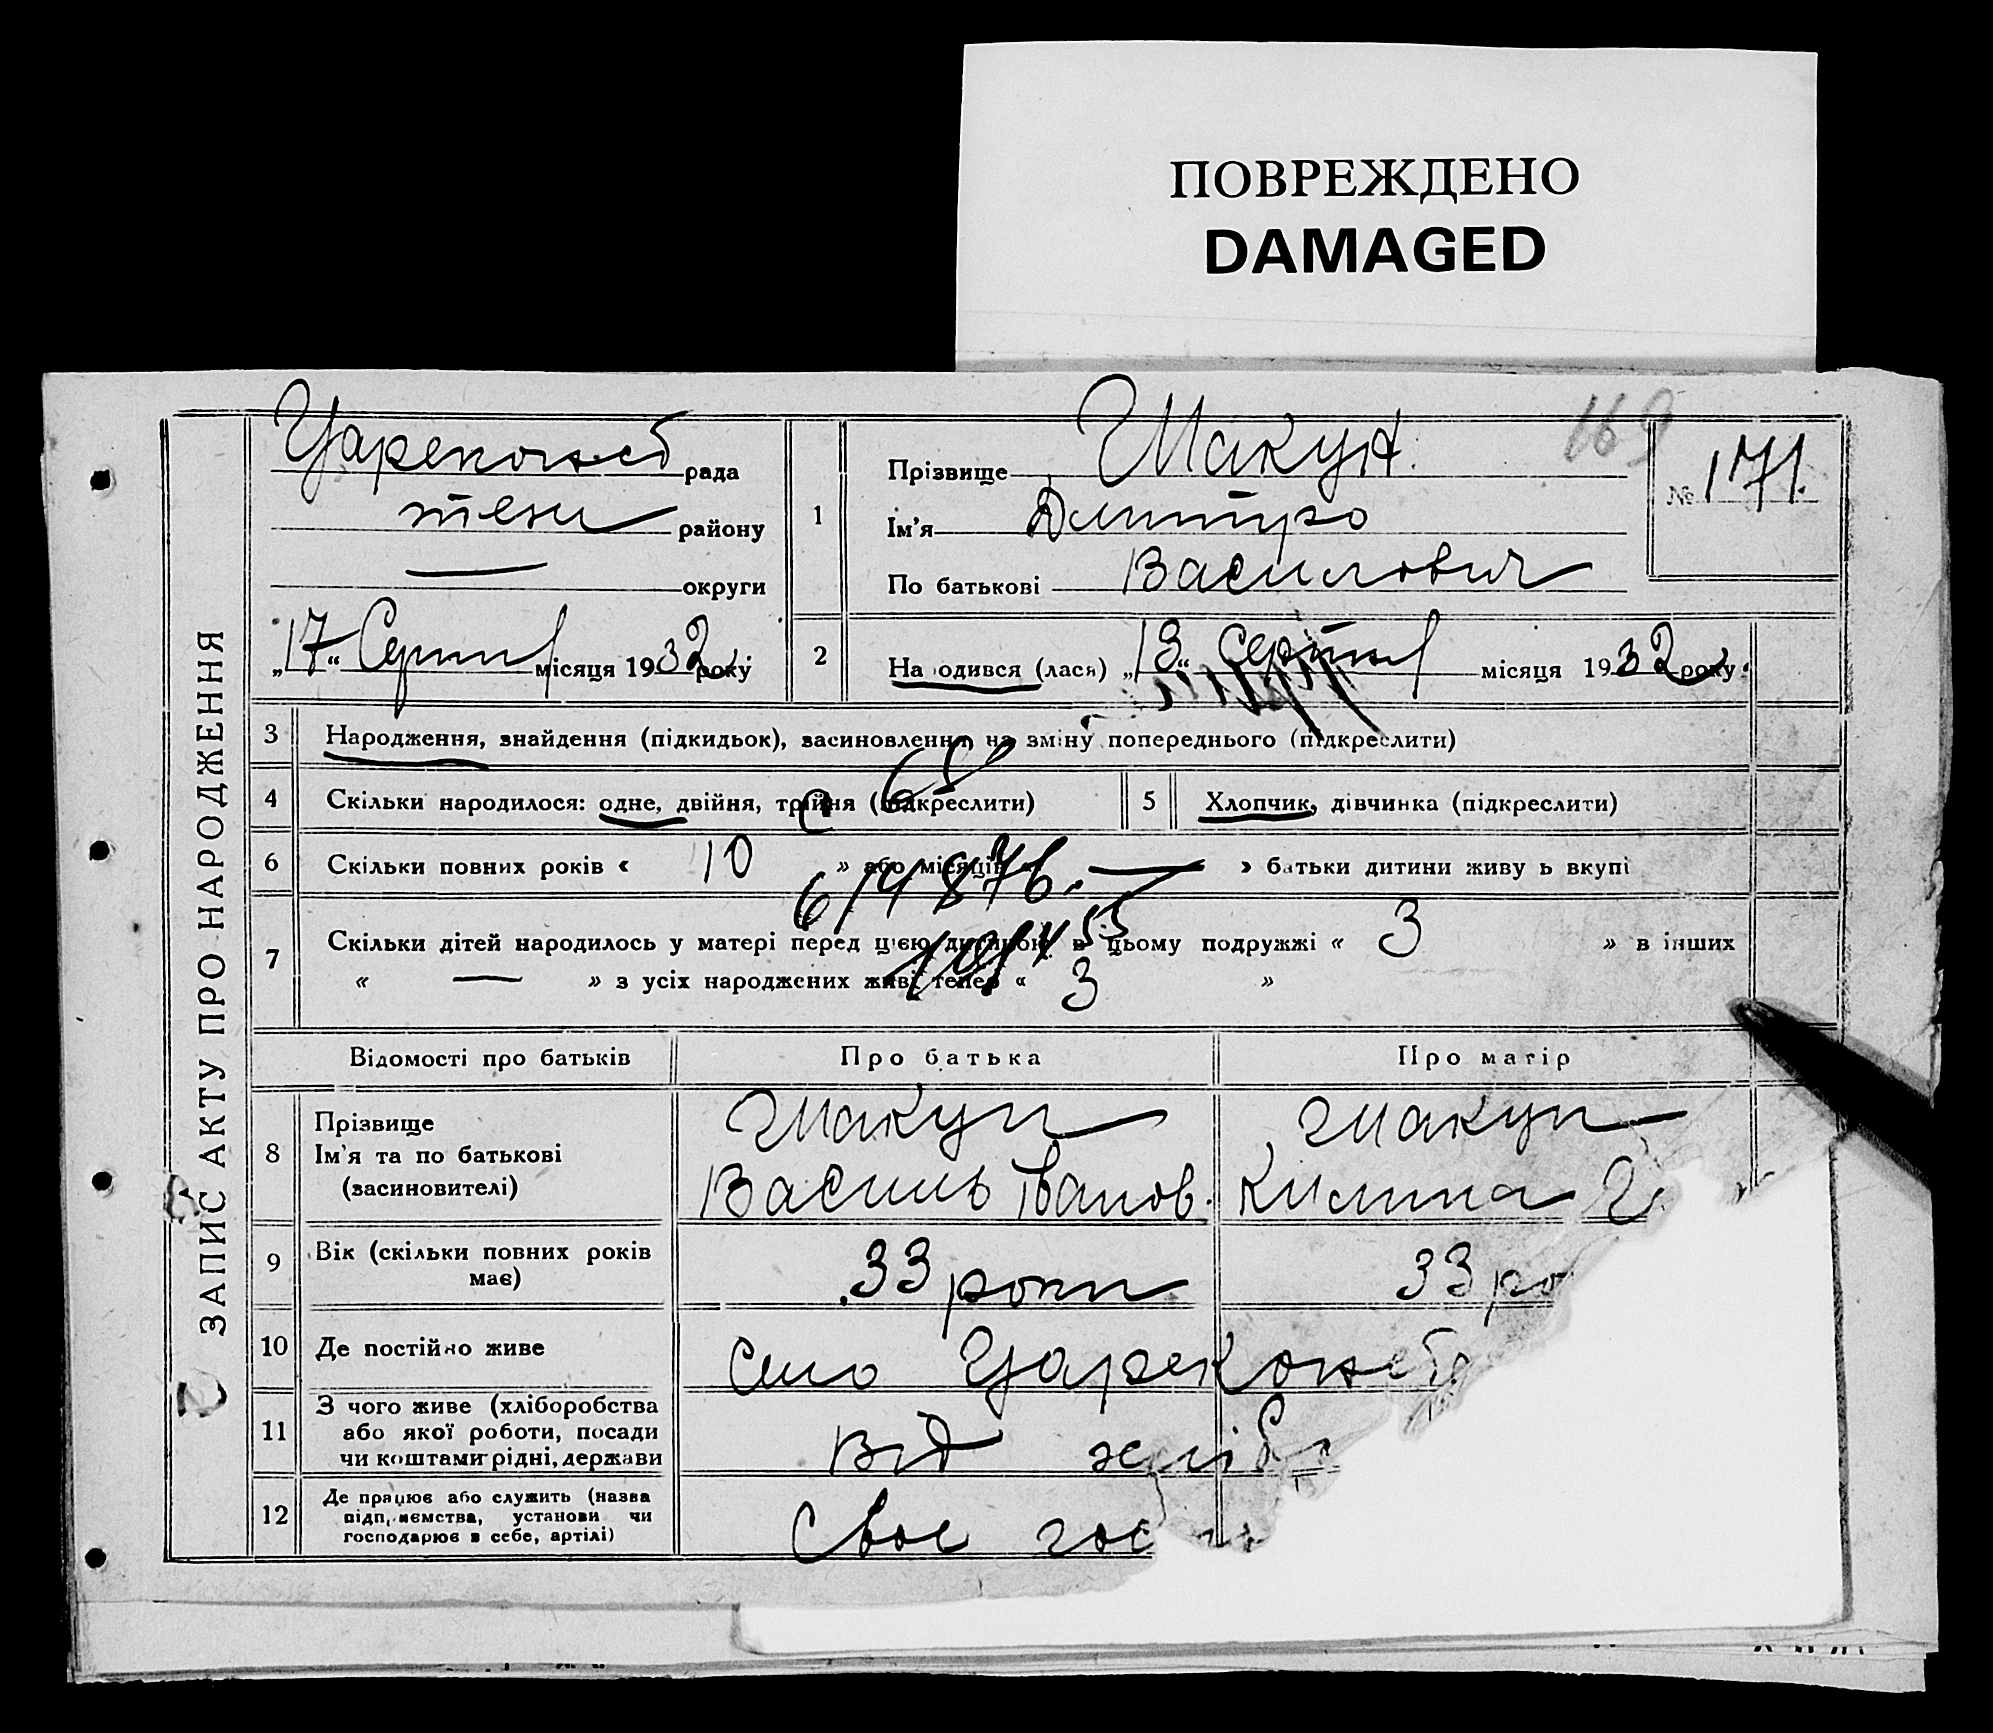 ПОВРЕЖДЕНО
DAMAGED
ЗАПИС АКТУ ПРО НАРОДЖЕННЯ
рада
району
округи
„17“ Серпня місяця 1932 року
169
№ 171.
1
Прізвище Макун
Ім'я Дмитро
По батькові Василович
2
Народився (лася) „13“ Серпня місяця 1932 року.
3
Народження, знайдення (підкидьок), засиновлення, на зміну попереднього (підкреслити)
4
Скільки народилося: одне, двійня, трійня (підкреслити)
5
Хлопчик, дівчинка (підкреслити)
6
Скільки повних років « 10 » або місяців « — » батьки дитини живуть вкупі
7
Скільки дітей народилось у матері перед цією дитиною в цьому подружжі « 3 » в інших
« — » з усіх народжених живі тепер « 3 »
Відомості про батьків
Про батька
Про матір
8
Прізвище
Ім'я та по батькові
(засиновителі)
Макун
Василь Іванов.
Макун
Килина
9
Вік (скільки повних років
має)
33 роки
33 ро
10
Де постійно живе
село
11
З чого живе (хліборобства
або якої роботи, посади
чи коштами рідні, держави
від хліб
12
Де працює або служить (назва
підприємства, установи чи
господарює в себе, артілі)
Своє гос